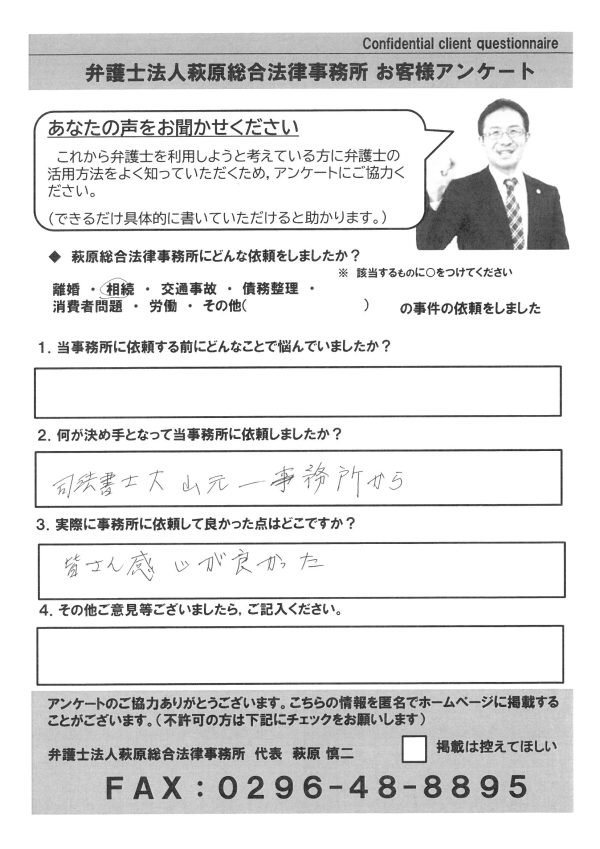 Confidential client questionnaire
弁護士法人萩原総合法律事務所 お客様アンケート
あなたの声をお聞かせください
これから弁護士を利用しようと考えている方に弁護士の
活用方法をよく知っていただくため，アンケートにご協力く
ださい。
（できるだけ具体的に書いていただけると助かります。）
◆ 萩原総合法律事務所にどんな依頼をしましたか？
※ 該当するものに○をつけてください
離婚 ・ 相続 ・ 交通事故 ・ 債務整理 ・
消費者問題 ・ 労働 ・ その他( ) の事件の依頼をしました
1．当事務所に依頼する前にどんなことで悩んでいましたか？
2．何が決め手となって当事務所に依頼しましたか？
司法書士大山元一事務所から
3．実際に事務所に依頼して良かった点はどこですか？
皆さん感じが良かった
4．その他ご意見等ございましたら，ご記入ください。
アンケートのご協力ありがとうございます。こちらの情報を匿名でホームページに掲載する
ことがございます。（不許可の方は下記にチェックをお願いします）
弁護士法人萩原総合法律事務所 代表 萩原 慎二 掲載は控えてほしい
FAX：0296-48-8895